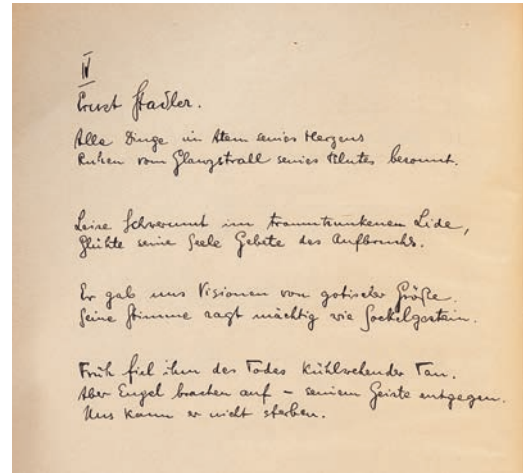 IV
Ernst Stadler.
Alle Dinge im Atem seines Herzens
Ruhen vom Glanzstrall seines Blutes besonnt.
Leise Schwermut im traumtrunkenen Lide,
Glühte seine Seele Gebete des Aufbruchs.
Er gab uns Visionen von gotischer Größe.
Seine Stimme ragt mächtig wie Sockelgestein.
Früh fiel ihm des Todes kühlwehender Tau.
Aber Engel brachen auf – seinem Geiste entgegen.
Uns kann er nicht sterben.